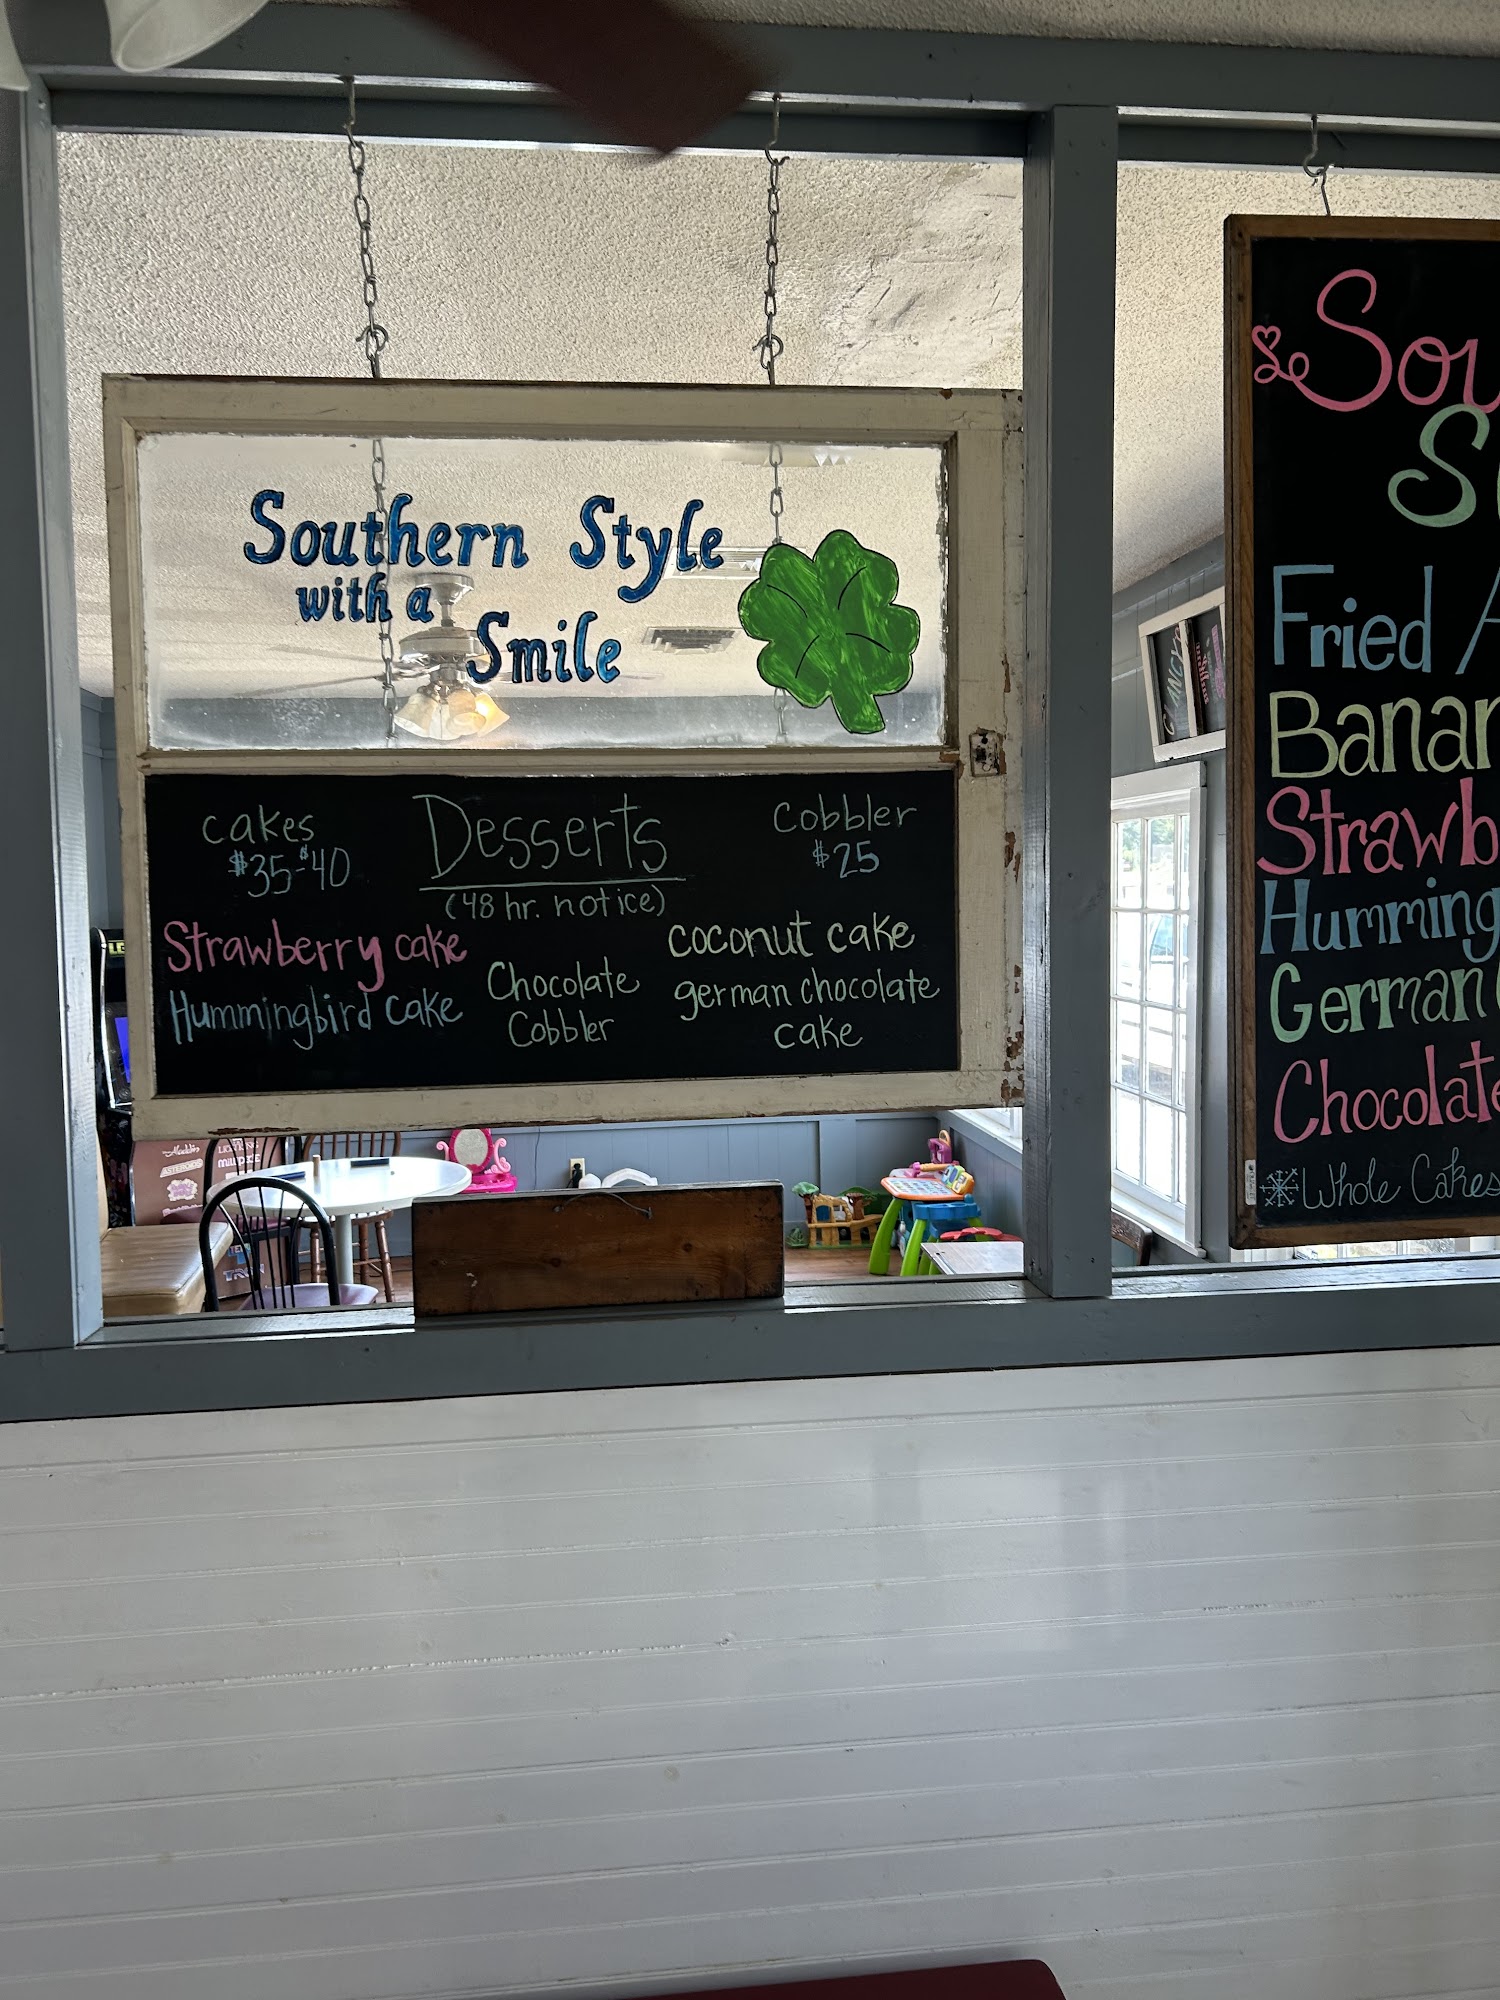 Southern Style
with a
Smile
Desserts
(48 hr. notice)
cakes
$35-$40
Cobbler
$25
Strawberry cake
Hummingbird cake
Chocolate
Cobbler
coconut cake
german chocolate
cake
Sou
S
Fried A
Banan
Strawb
Humming
German C
Chocolate
Whole Cakes
Aladdin
ASTEROIDS
MILLIPEDE
TRON